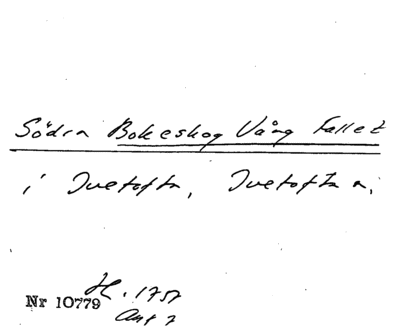 Södra Bokeskog Vång Fallet
i Ivetofta, Ivetofta s.
Nr 10779 H. 1757
Akt 7